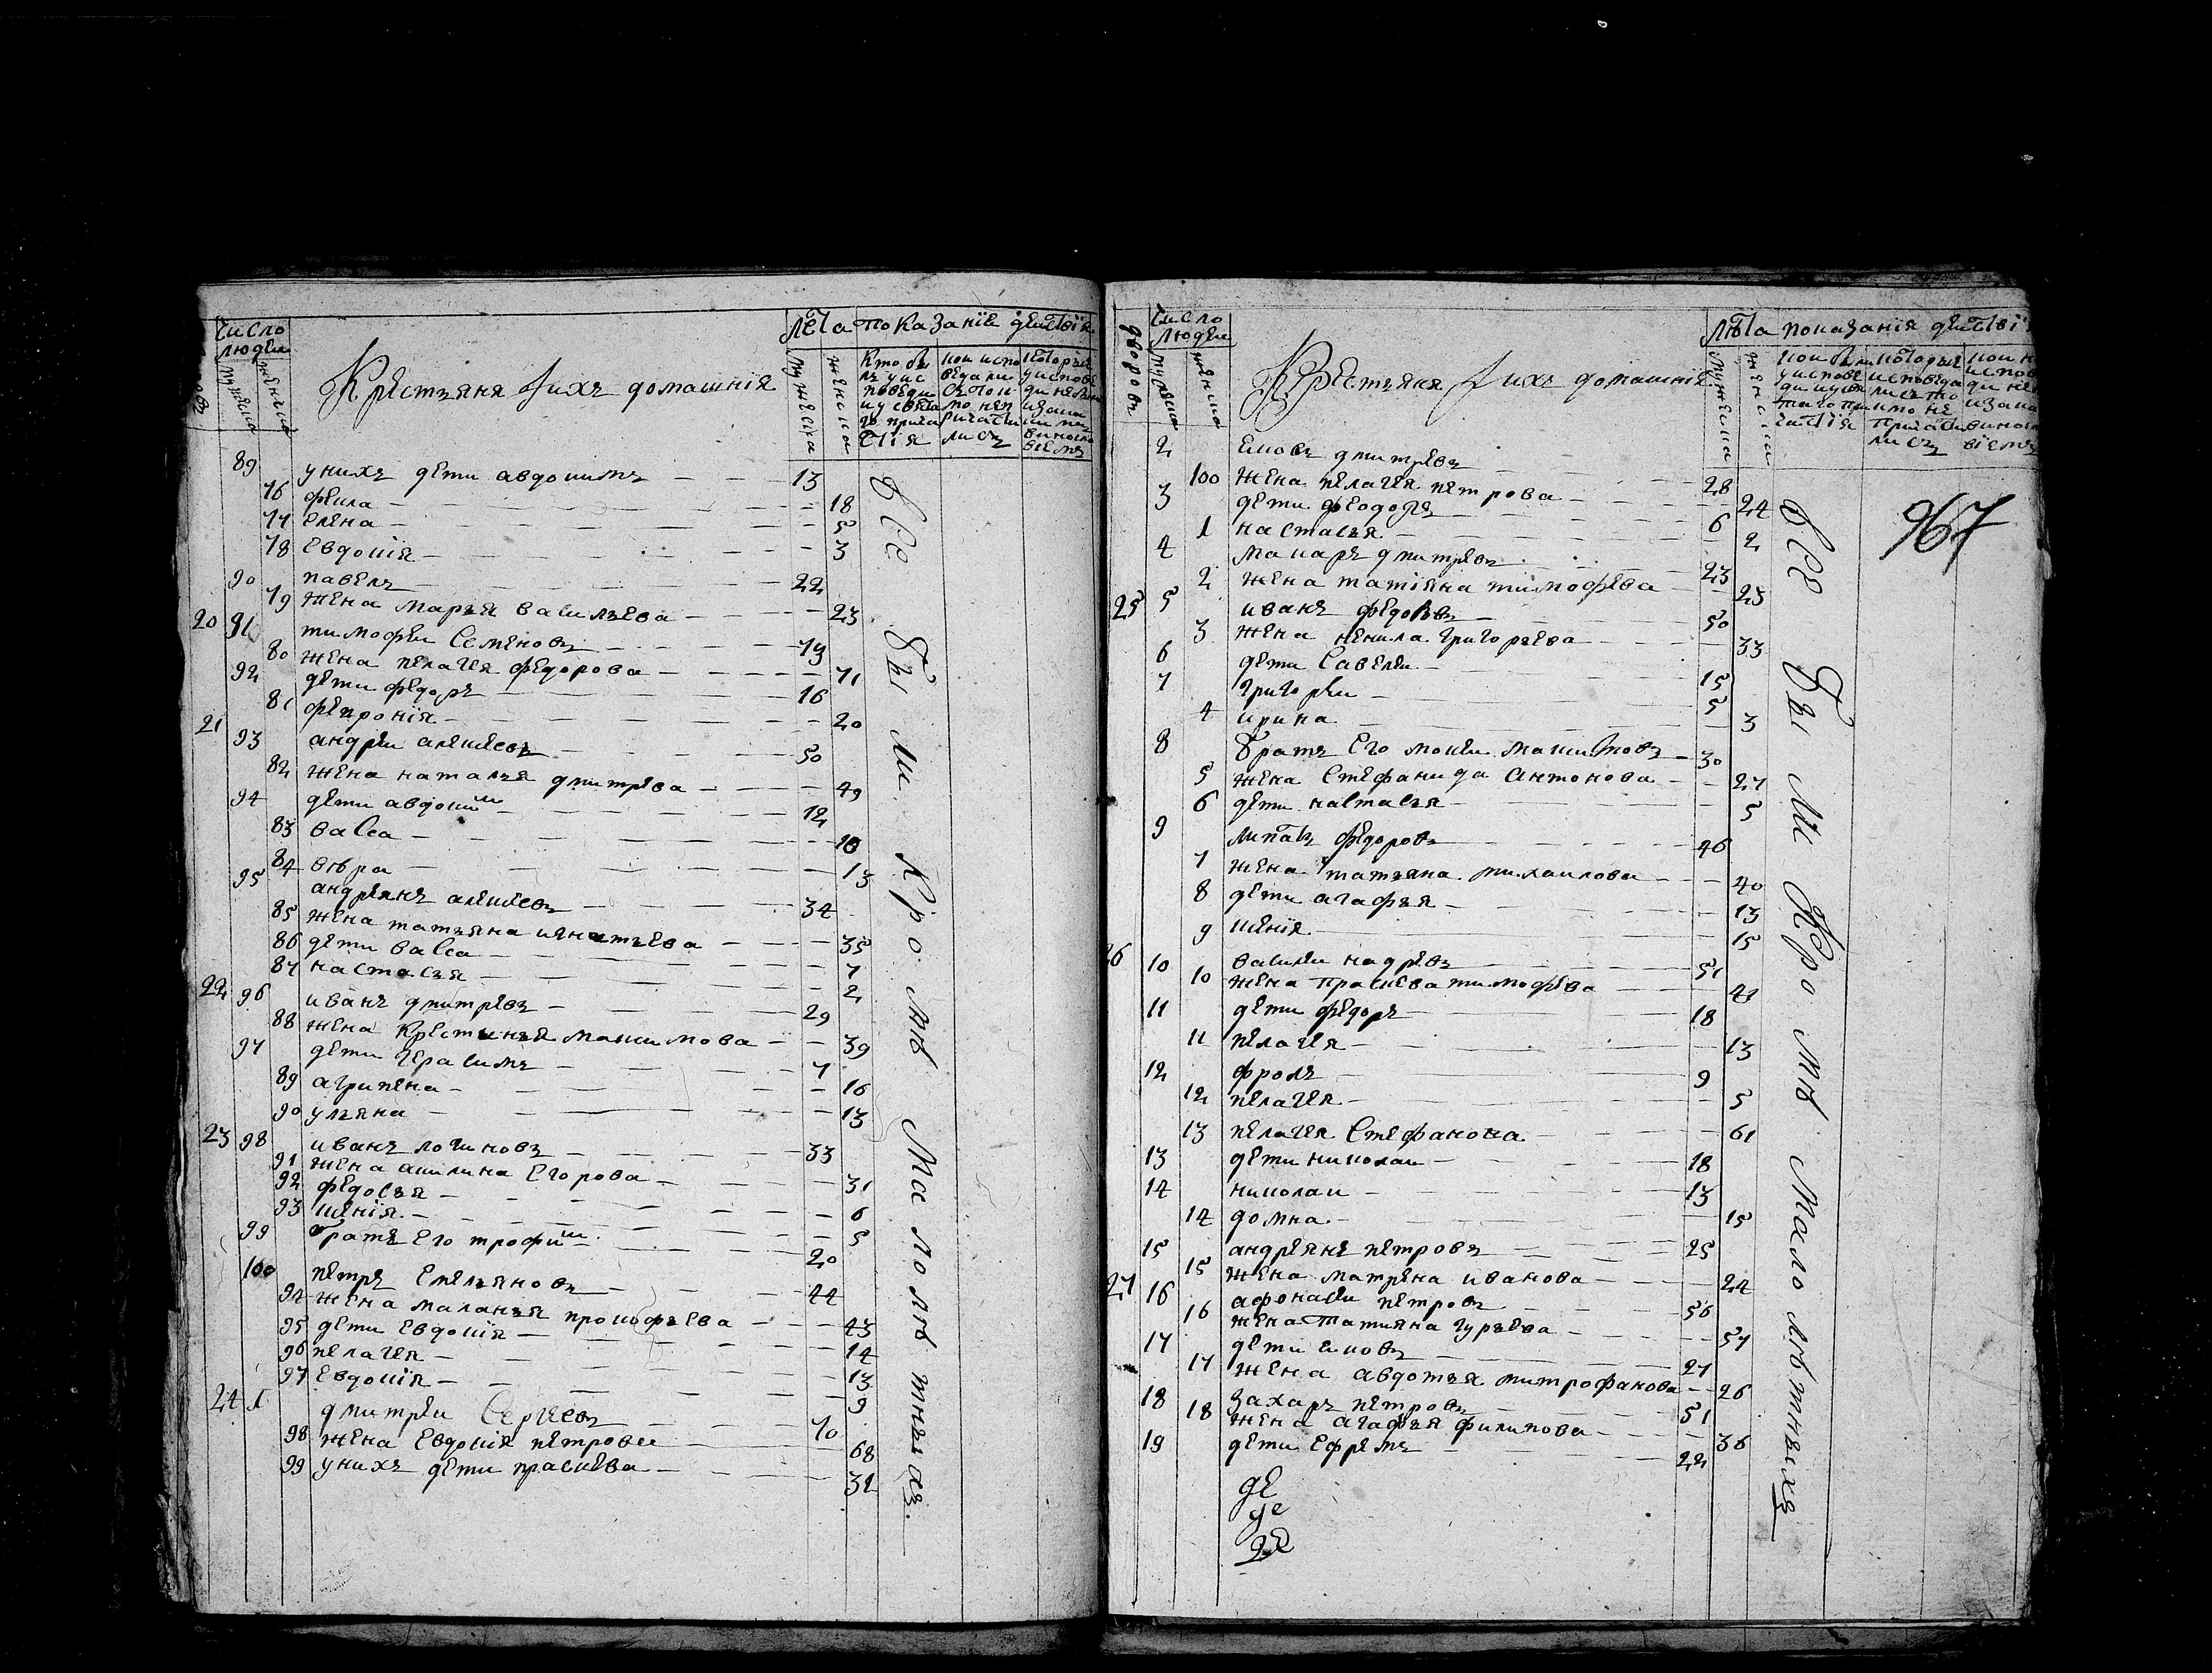 число
людеи
мужеска
женска
Крестьяня и ихъ домашнiе
лета показанiе деиствiя
мужеска
женска
89 у нихъ дети авдокимъ 13
76 фекла 18
77 елена 5
78 Евдокiя 3
90 павелъ 22
79 жена марья васильева 23
20 91 тимофеи Семеновъ 73
80 жена пелагея федорова 71
92 дети федоръ 16
81 февронiя 20
21 93 андреи алексеевъ 50
82 жена наталья дмитрева 49
94 дети авдоким 12
83 васса 18
84 вѣра 13
95 андреянъ алексеевъ 34
85 жена татьяна игнатьева 35
86 дети васса 7
87 настасья 2
22 96 иванъ дмитревъ 29
88 жена Крестинья максимова 39
97 дети герасимъ 7
89 агрипена 16
90 ульяна 13
23 98 иванъ логиновъ 33
91 жена акилина Егорова 31
92 федосья 6
93 ксенiя 5
99 братъ Его трофим 20
100 петръ Емельяновъ 44
94 жена маланья прокофьева 43
95 дети Евдокiя 14
96 пелагея 13
97 Евдокiя 9
24 1 дмитреи Сергеевъ 70
98 жена Евдокiя петрова 68
99 у нихъ дети праскева 32
все были кромѣ малолѣтныхъ
дворовъ
число
людеи
мужеска
женска
Крестьяня и ихъ домашнiе
лѣта показанiя деиствi
мужеска
2 Ековъ дмитревъ 28
100 жена пелагея петрова 24
3 дети феодоръ 6
1 настасья 2
4 макаръ дмитревъ 23
2 жена татiяна тимофева 25
25 5 иванъ федоровъ 50
3 жена ненила григорьева 33
6 дети Савелеи 15
7 григореи 5
4 ирина 3
8 братъ Его мокеи максимовъ 30
5 жена Стефанида антонова 27
6 дети настасья 5
9 липатъ федоровъ 46
7 жена татьяна михаилова 40
8 дети агафья 13
9 ксенiя 15
26 10 василеи андревъ 51
10 жена праскева тимофева 41
11 дети федоръ 18
11 пелагея 13
12 фролъ 9
12 пелагея 5
13 пелагея Стефанова 61
13 дети николаи 18
14 николаи 13
14 домна 15
15 андреянъ петровъ 25
15 жена матрена иванова 24
27 16 афонасеи петровъ 56
16 жена татияна гурьева 57
17 дети ековъ 27
17 жена авдотья митрофанова 26
18 захаръ петровъ 51
18 жена агафья филипова 36
19 дети Ефремъ 22
все были кромѣ малолѣтныхъ
967